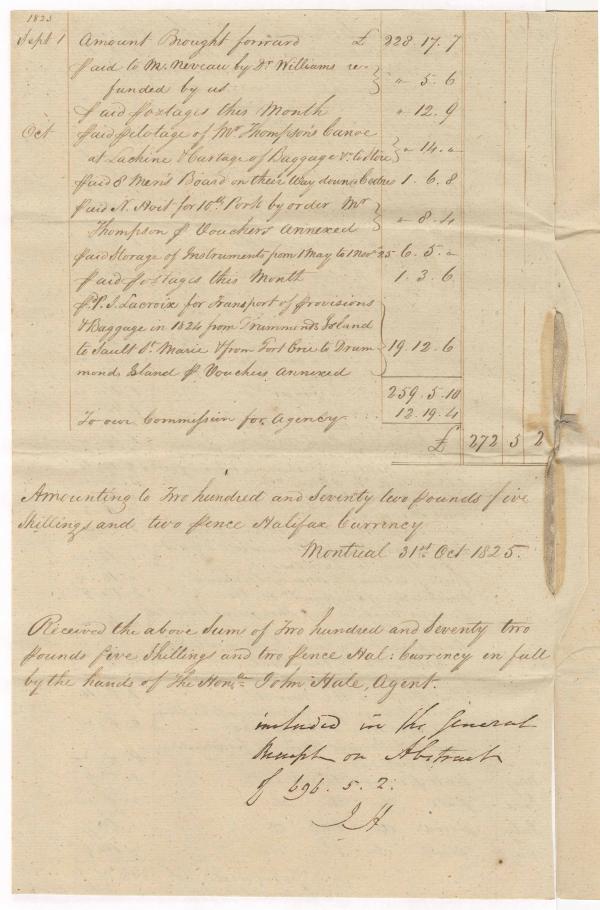 1825
Sept 1 Amount Brought forward £ 228.17.7
Paid to M. Neveau by Dr Williams re-
funded by us } " 5.6
Paid Postages this Month " 12.9
Oct Paid Pilotage of Mr Thompson's Canoe
at Lachine & Cartage of Baggage &c to Store } " 14. "
Paid 8 Men's Board on their Way down Cedres 1.6.8
Paid N. Hoit for 10lb Pork by order Mr
Thompson p Vouchers annexed } " 8.4
Paid Storage of Instruments from 1 May to 1 Novr 25 6.5. "
Paid Postages this Month 1.3.6
Pd P. I. Lacroix for Transport of Provisions
& Baggage in 1824 from Drummonds Island
to Sault St. Marie & from Fort Erie to Drum-
mond Island p Vouchers Annexed } 19.12.6
259.5.10
To our Commission for Agency 12.19.4
£ 272 5 2
Amounting to Two hundred and Seventy two pounds five
Shillings and two pence Halifax Currency
Montreal 31st Oct 1825.
Received the above Sum of Two hundred and Seventy two
pounds five Shillings and two pence Hal: Currency in full
by the hands of The Honble John Hale, Agent.
included in the General
Receipt on Abstract
of 696.5.2.
J H